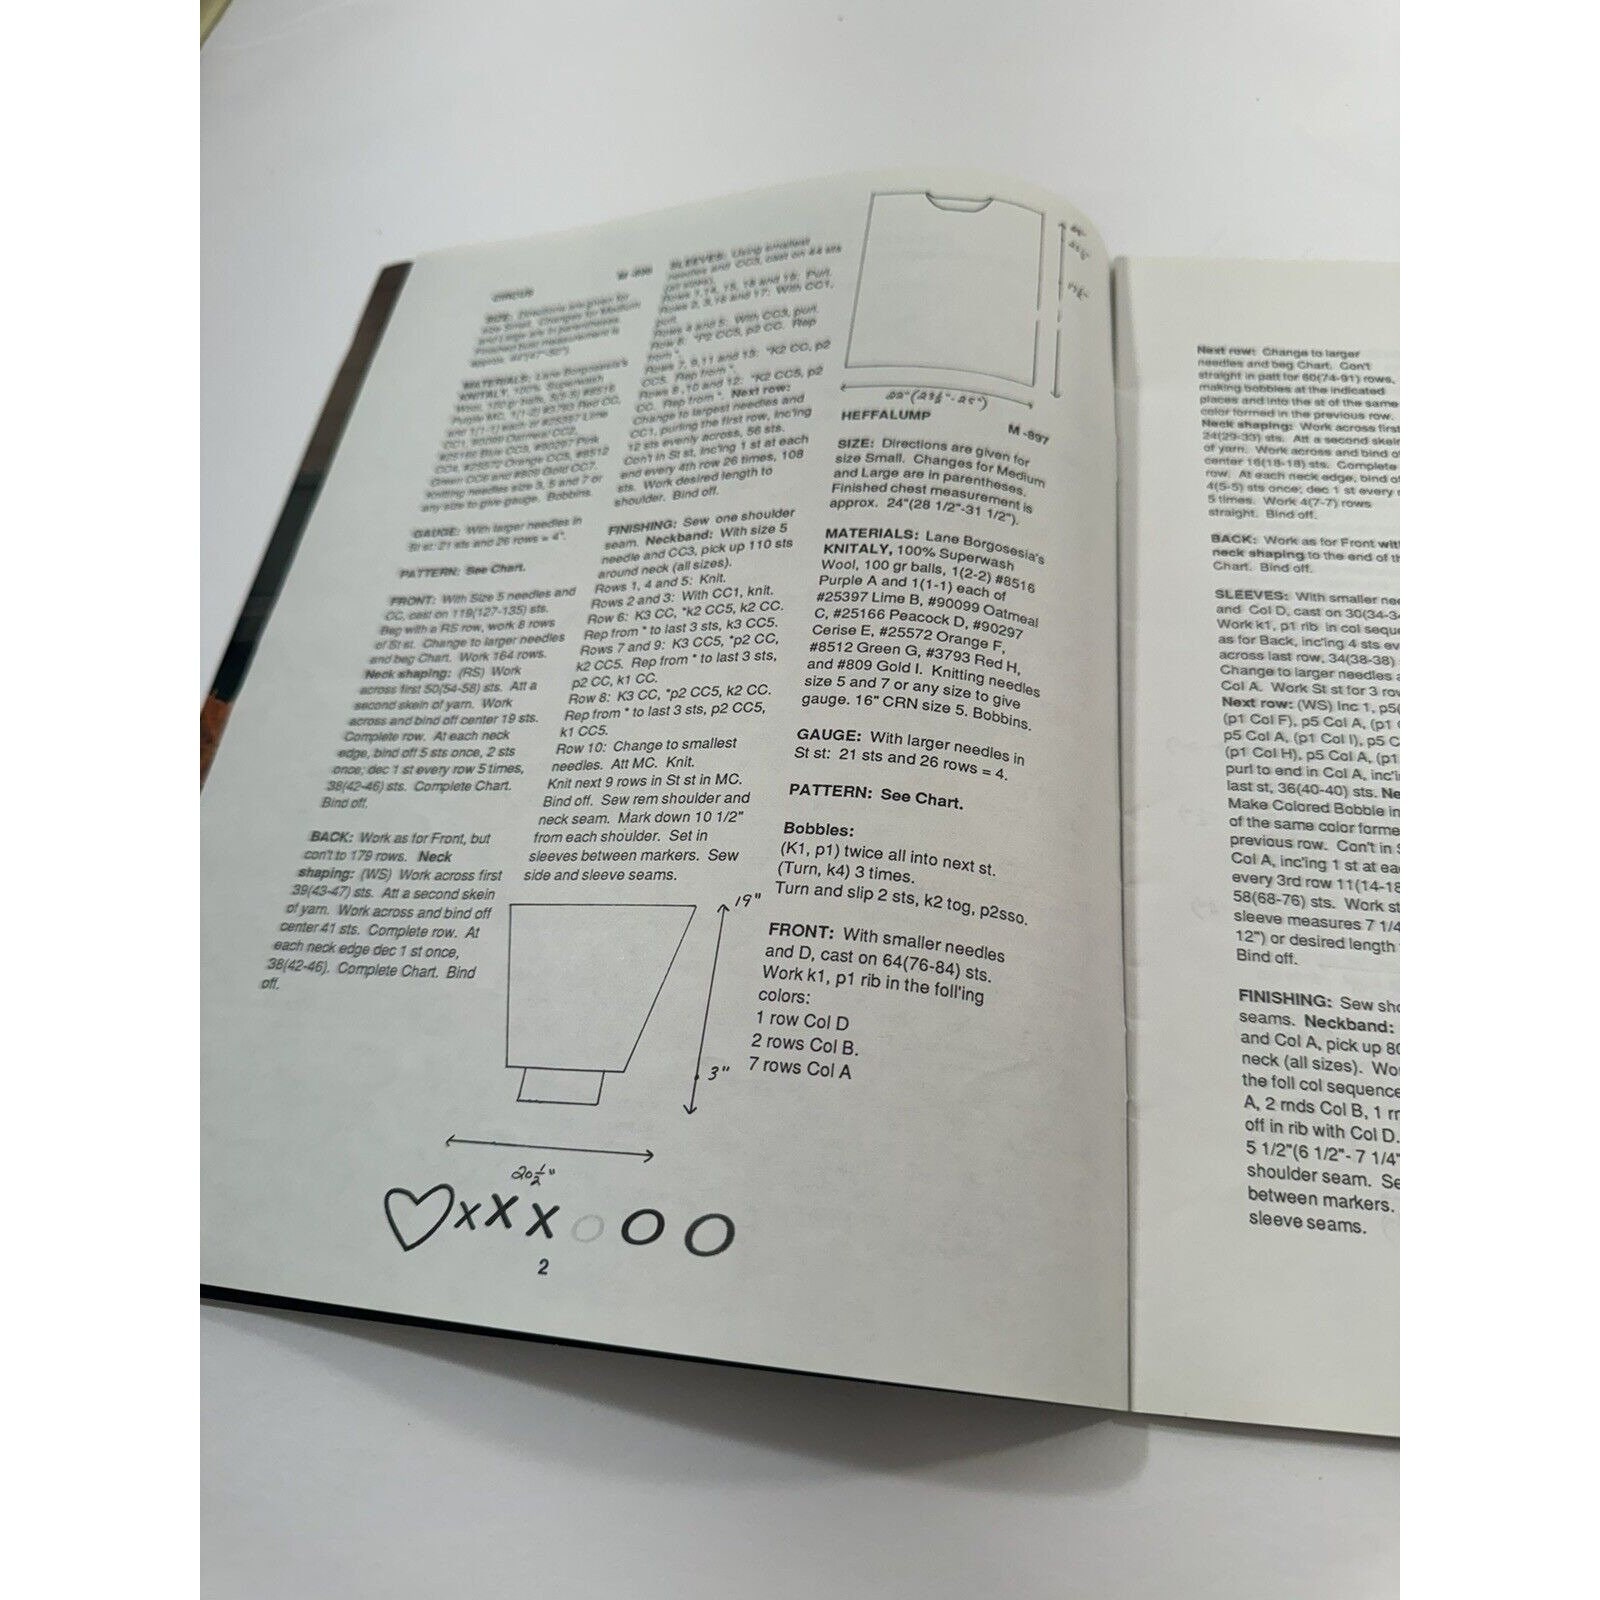 CIRCUS
SIZE: Directions are given for
size Small. Changes for Medium
and Large are in parentheses.
Finished bust measurement is
approx.
MATERIALS: Lane Borgosesia's
KNITALY, 100% Superwash
Wool, 100 gr balls,
Purple MC,
Green CC6 and #809 Gold CC7.
Knitting needles size 3, 5 and 7 or
any size to give gauge. Bobbins.
GAUGE: With larger needles in
St st: 21 sts and 26 rows = 4".
PATTERN: See Chart.
FRONT: With Size 5 needles and
CC, cast on 119(127-135) sts.
Beg with a RS row, work 8 rows
of St st. Change to larger needles
and beg Chart. Work 164 rows.
Neck shaping: (RS) Work
across first 50(54-58) sts. Att a
second skein of yarn. Work
across and bind off center 19 sts.
Complete row. At each neck
edge, bind off 5 sts once, 2 sts
once; dec 1 st every row 5 times,
38(42-46) sts. Complete Chart.
Bind off.
BACK: Work as for Front, but
con't to 179 rows. Neck
shaping: (WS) Work across first
39(43-47) sts. Att a second skein
of yarn. Work across and bind off
center 41 sts. Complete row. At
each neck edge dec 1 st once,
38(42-46). Complete Chart. Bind
off.
SLEEVES: Using smallest
needles and CC3, cast on 44 sts
(all sizes).
Rows 2, 3, 16 and 17: With CC1,
purl.
Rows 4 and 5: With CC3, purl.
Row 6: *P2 CC5, p2 CC. Rep
from *.
Rows 7, 9, 11 and 13: *K2 CC, p2
CC5. Rep from *.
Rows 8, 10 and 12: *K2 CC5, p2
CC. Rep from *. Next row:
Change to largest needles and
CC1, purling the first row, inc'ing
12 sts evenly across, 56 sts.
Con't in St st, inc'ing 1 st at each
end every 4th row 26 times, 108
sts. Work desired length to
shoulder. Bind off.
FINISHING: Sew one shoulder
seam. Neckband: With size 5
needle and CC3, pick up 110 sts
around neck (all sizes).
Rows 1, 4 and 5: Knit.
Rows 2 and 3: With CC1, knit.
Row 6: K3 CC, *k2 CC5, k2 CC.
Rep from * to last 3 sts, k3 CC5.
Rows 7 and 9: K3 CC5, *p2 CC,
k2 CC5. Rep from * to last 3 sts,
p2 CC, k1 CC.
Row 8: K3 CC, *p2 CC5, k2 CC.
Rep from * to last 3 sts, p2 CC5,
k1 CC5.
Row 10: Change to smallest
needles. Att MC. Knit.
Knit next 9 rows in St st in MC.
Bind off. Sew rem shoulder and
neck seam. Mark down 10 1/2"
from each shoulder. Set in
sleeves between markers. Sew
side and sleeve seams.
19"
3"
20½"
xXX OOO
2
22"(23½"-25")
HEFFALUMP
M-897
SIZE: Directions are given for
size Small. Changes for Medium
and Large are in parentheses.
Finished chest measurement is
approx. 24"(28 1/2"-31 1/2").
MATERIALS: Lane Borgosesia's
KNITALY, 100% Superwash
Wool, 100 gr balls, 1(2-2) #8516
Purple A and 1(1-1) each of
#25397 Lime B, #90099 Oatmeal
C, #25166 Peacock D, #90297
Cerise E, #25572 Orange F,
#8512 Green G, #3793 Red H,
and #809 Gold I. Knitting needles
size 5 and 7 or any size to give
gauge. 16" CRN size 5. Bobbins.
GAUGE: With larger needles in
St st: 21 sts and 26 rows = 4.
PATTERN: See Chart.
Bobbles:
(K1, p1) twice all into next st.
(Turn, k4) 3 times.
Turn and slip 2 sts, k2 tog, p2sso.
FRONT: With smaller needles
and D, cast on 64(76-84) sts.
Work k1, p1 rib in the foll'ing
colors:
1 row Col D
2 rows Col B.
7 rows Col A
Next row: Change to larger
needles and beg Chart. Con't
straight in patt for 60(74-91) rows,
making bobbles at the indicated
places and into the st of the same
color formed in the previous row.
Neck shaping: Work across first
24(29-33) sts. Att a second skein
of yarn. Work across and bind of
center 16(18-18) sts. Complete
row. At each neck edge, bind of
4(5-5) sts once; dec 1 st every
5 times. Work 4(7-7) rows
straight. Bind off.
BACK: Work as for Front wit
neck shaping to the end of th
Chart. Bind off.
SLEEVES: With smaller nee
and Col D, cast on 30(34-3
Work k1, p1 rib in col seque
as for Back, inc'ing 4 sts ev
across last row, 34(38-38)
Change to larger needles a
Col A. Work St st for 3 rov
Next row: (WS) Inc 1, p5(
(p1 Col F), p5 Col A, (p1
p5 Col A, (p1 Col I), p5 C
(p1 Col H), p5 Col A, (p1
purl to end in Col A, inc'i
last st, 36(40-40) sts. Ne
Make Colored Bobble in
of the same color forme
previous row. Con't in S
Col A, inc'ing 1 st at ea
every 3rd row 11(14-18
58(68-76) sts. Work st
sleeve measures 7 1/4
12") or desired length
Bind off.
FINISHING: Sew sho
seams. Neckband:
and Col A, pick up 80
neck (all sizes). Wo
the foll col sequence
A, 2 rnds Col B, 1 rr
off in rib with Col D.
5 1/2"(6 1/2"- 7 1/4"
shoulder seam. Se
between markers.
sleeve seams.